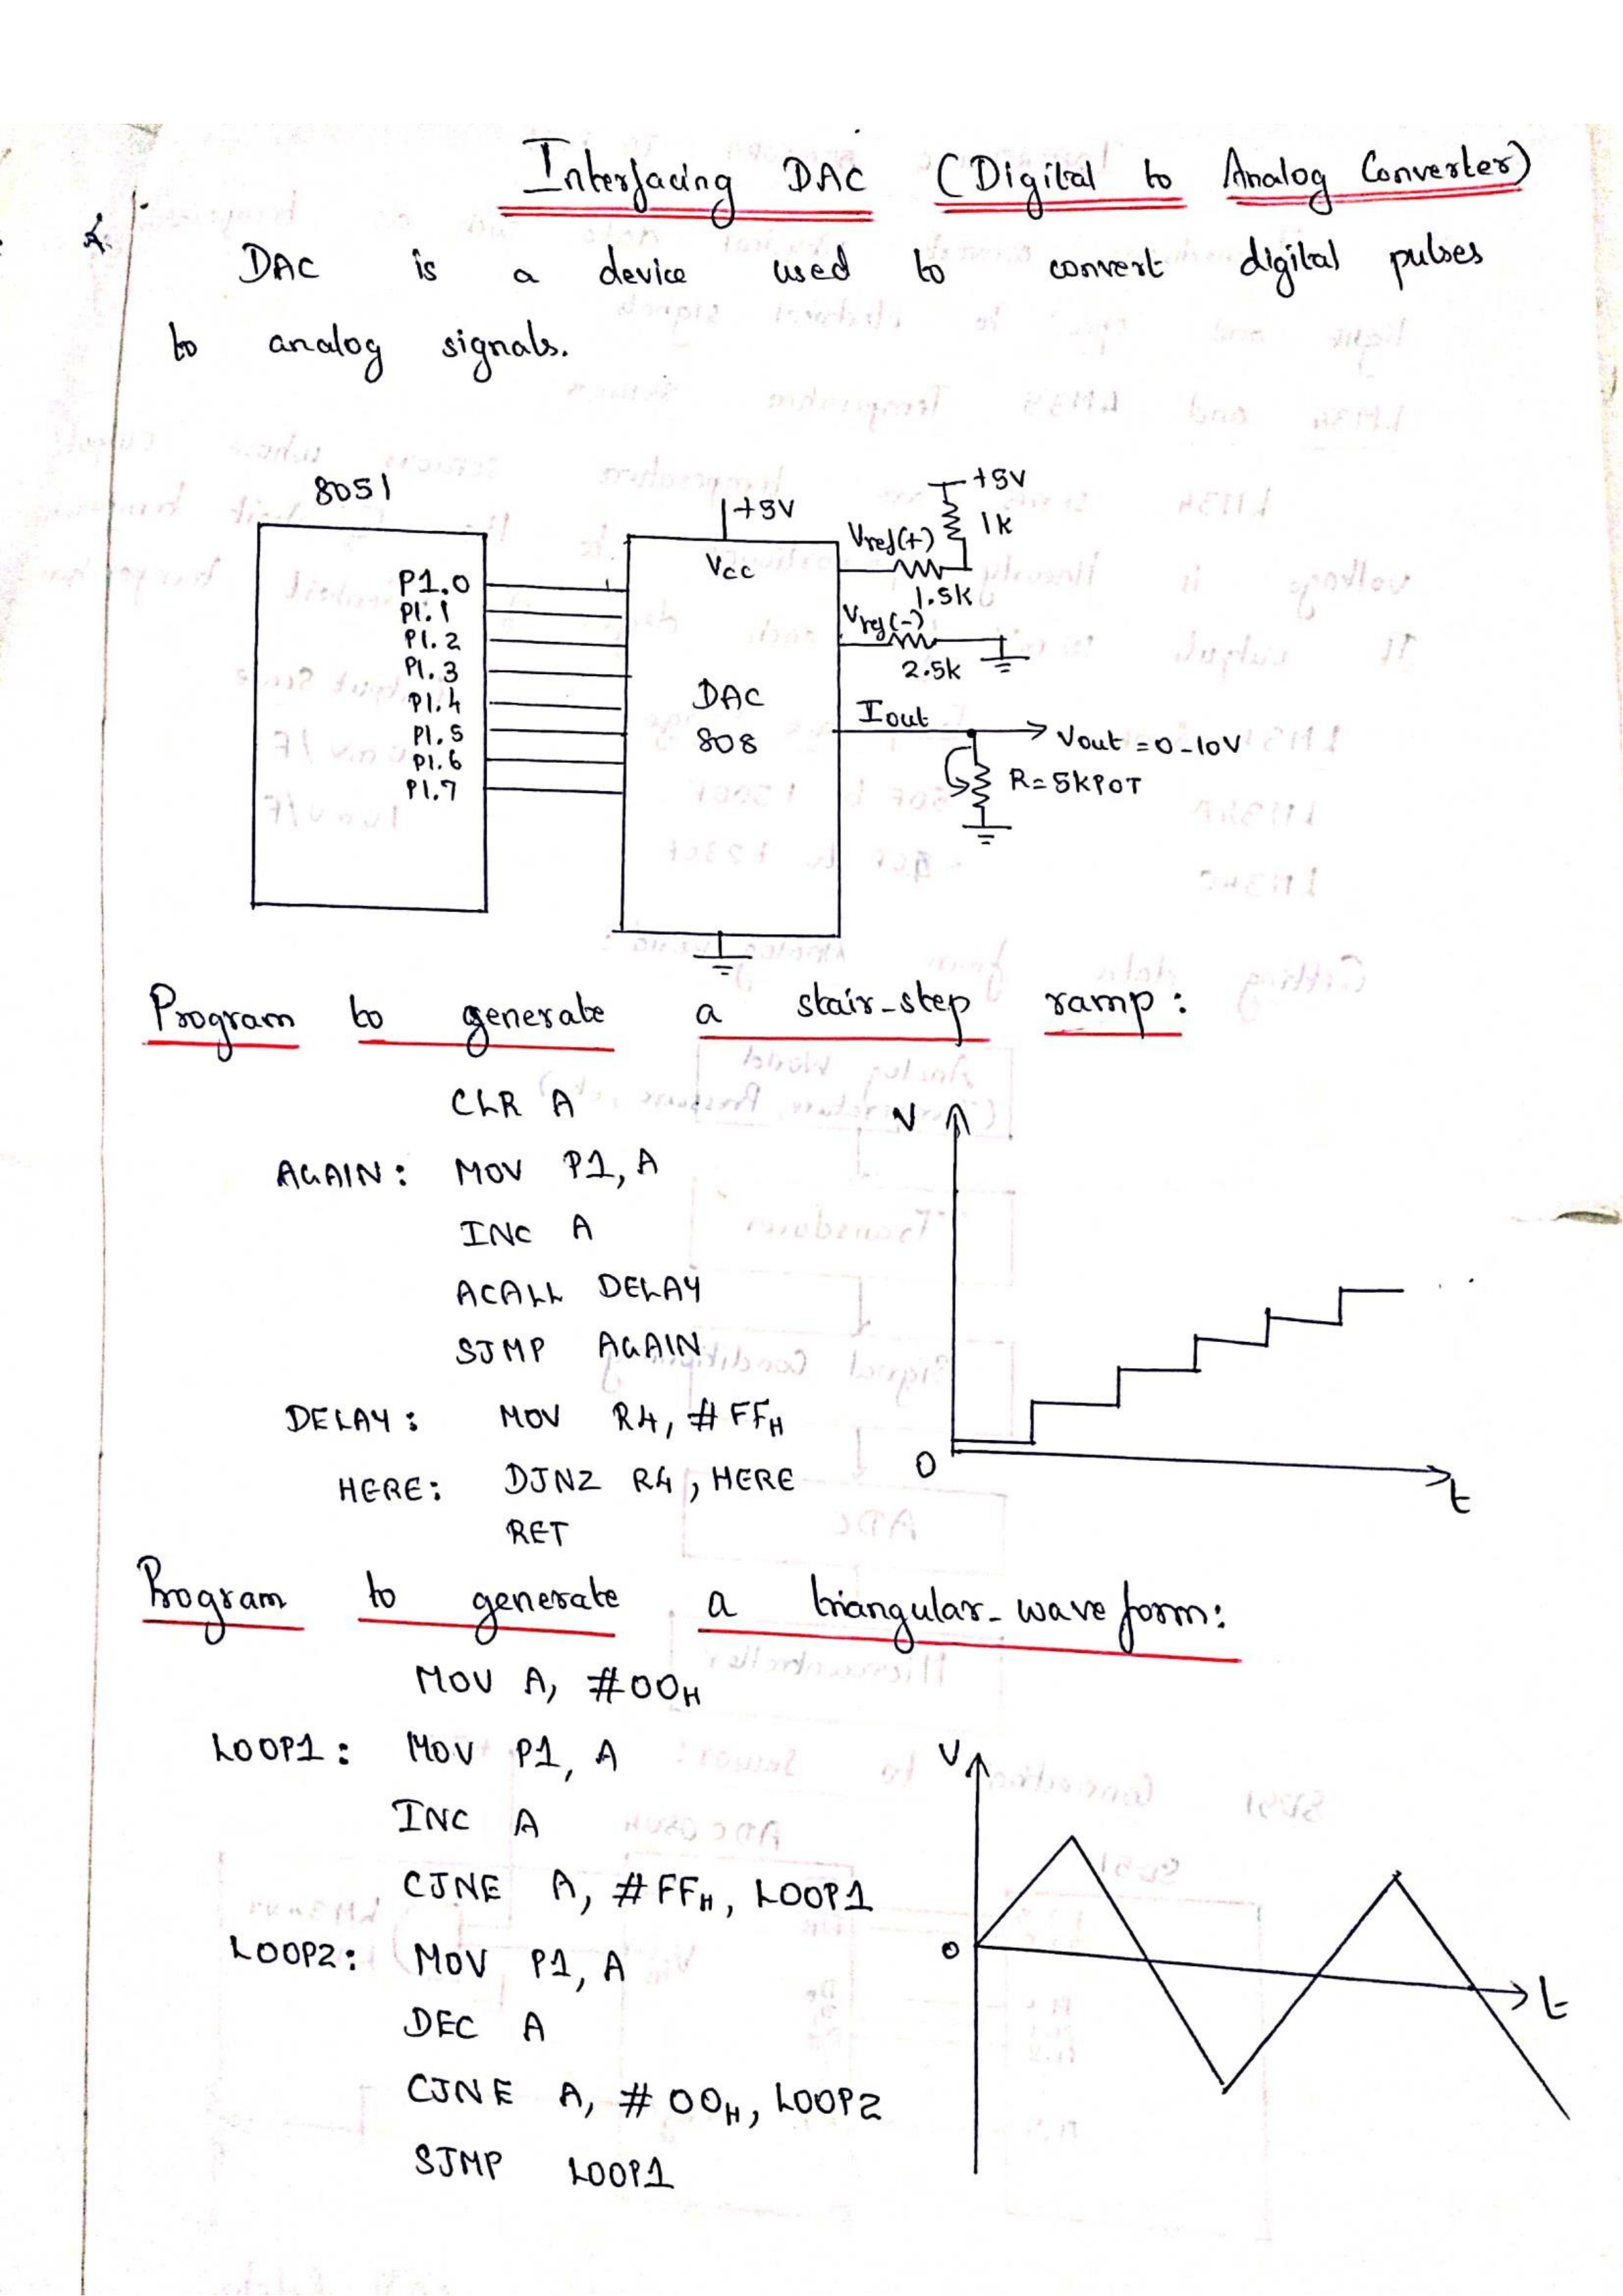 Interfacing DAC (Digital to Analog Converter)
DAC is a device used to convert digital pulses
to analog signals.
8051
P1.0
P1.1
P1.2
P1.3
P1.4
P1.5
P1.6
P1.7
+5V
Vcc
DAC
808
Vref(+)
+5V
1K
1.5K
Vref(-)
2.5K
Iout
Vout = 0-10V
R=5KPOT
Program to generate a stair-step ramp:
CLR A
AGAIN: MOV P1, A
INC A
ACALL DELAY
SJMP AGAIN
DELAY: MOV R4, #FFH
HERE: DJNZ R4, HERE
RET
V
0
t
Program to generate a triangular-wave form:
MOV A, #00H
LOOP1: MOV P1, A
INC A
CJNE A, #FFH, LOOP1
LOOP2: MOV P1, A
DEC A
CJNE A, #00H, LOOP2
SJMP LOOP1
V
0
t